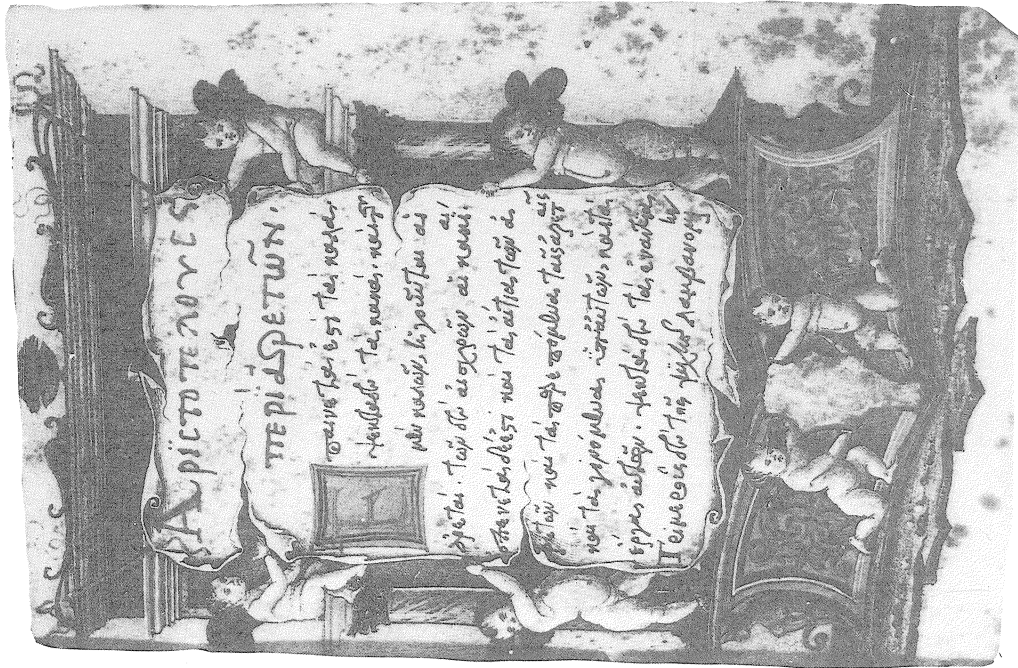 ἈΡΙϹΤΟΤΕΛΟΥϹ
περὶ ἀρετῶν.
παινετὰ ἐστὶ τὰ καλά,
ψεκτὰ δὲ τὰ κακά. καὶ τῶν
μὲν καλῶν, ἡγοῦνται αἱ
ἀρεταί. τῶν δὲ αἰσχρῶν αἱ κακίαι.
ἐπαινετὰ δέ ἐστι καὶ τὰ αἴτια τῶν ἀ
ρετῶν καὶ τὰ παρεπόμενα ταῖς ἀρεταῖς
καὶ τὰ γινόμενα ὑπ' αὐτῶν καὶ τὰ
ἔργα αὐτῶν. ψεκτὰ δὲ τὰ ἐναντία.
Τριμεροῦς δὲ τῆς ψυχῆς λαμβανομένης